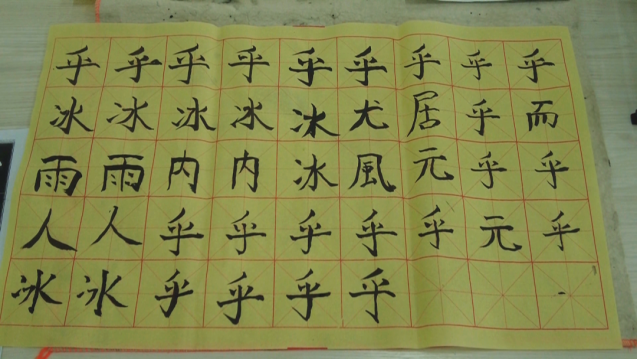 乎乎乎乎乎乎乎乎乎
冰冰冰冰冰尤居乎而
雨雨内内冰風元乎乎
人人乎乎乎乎乎元乎
冰冰乎乎乎乎